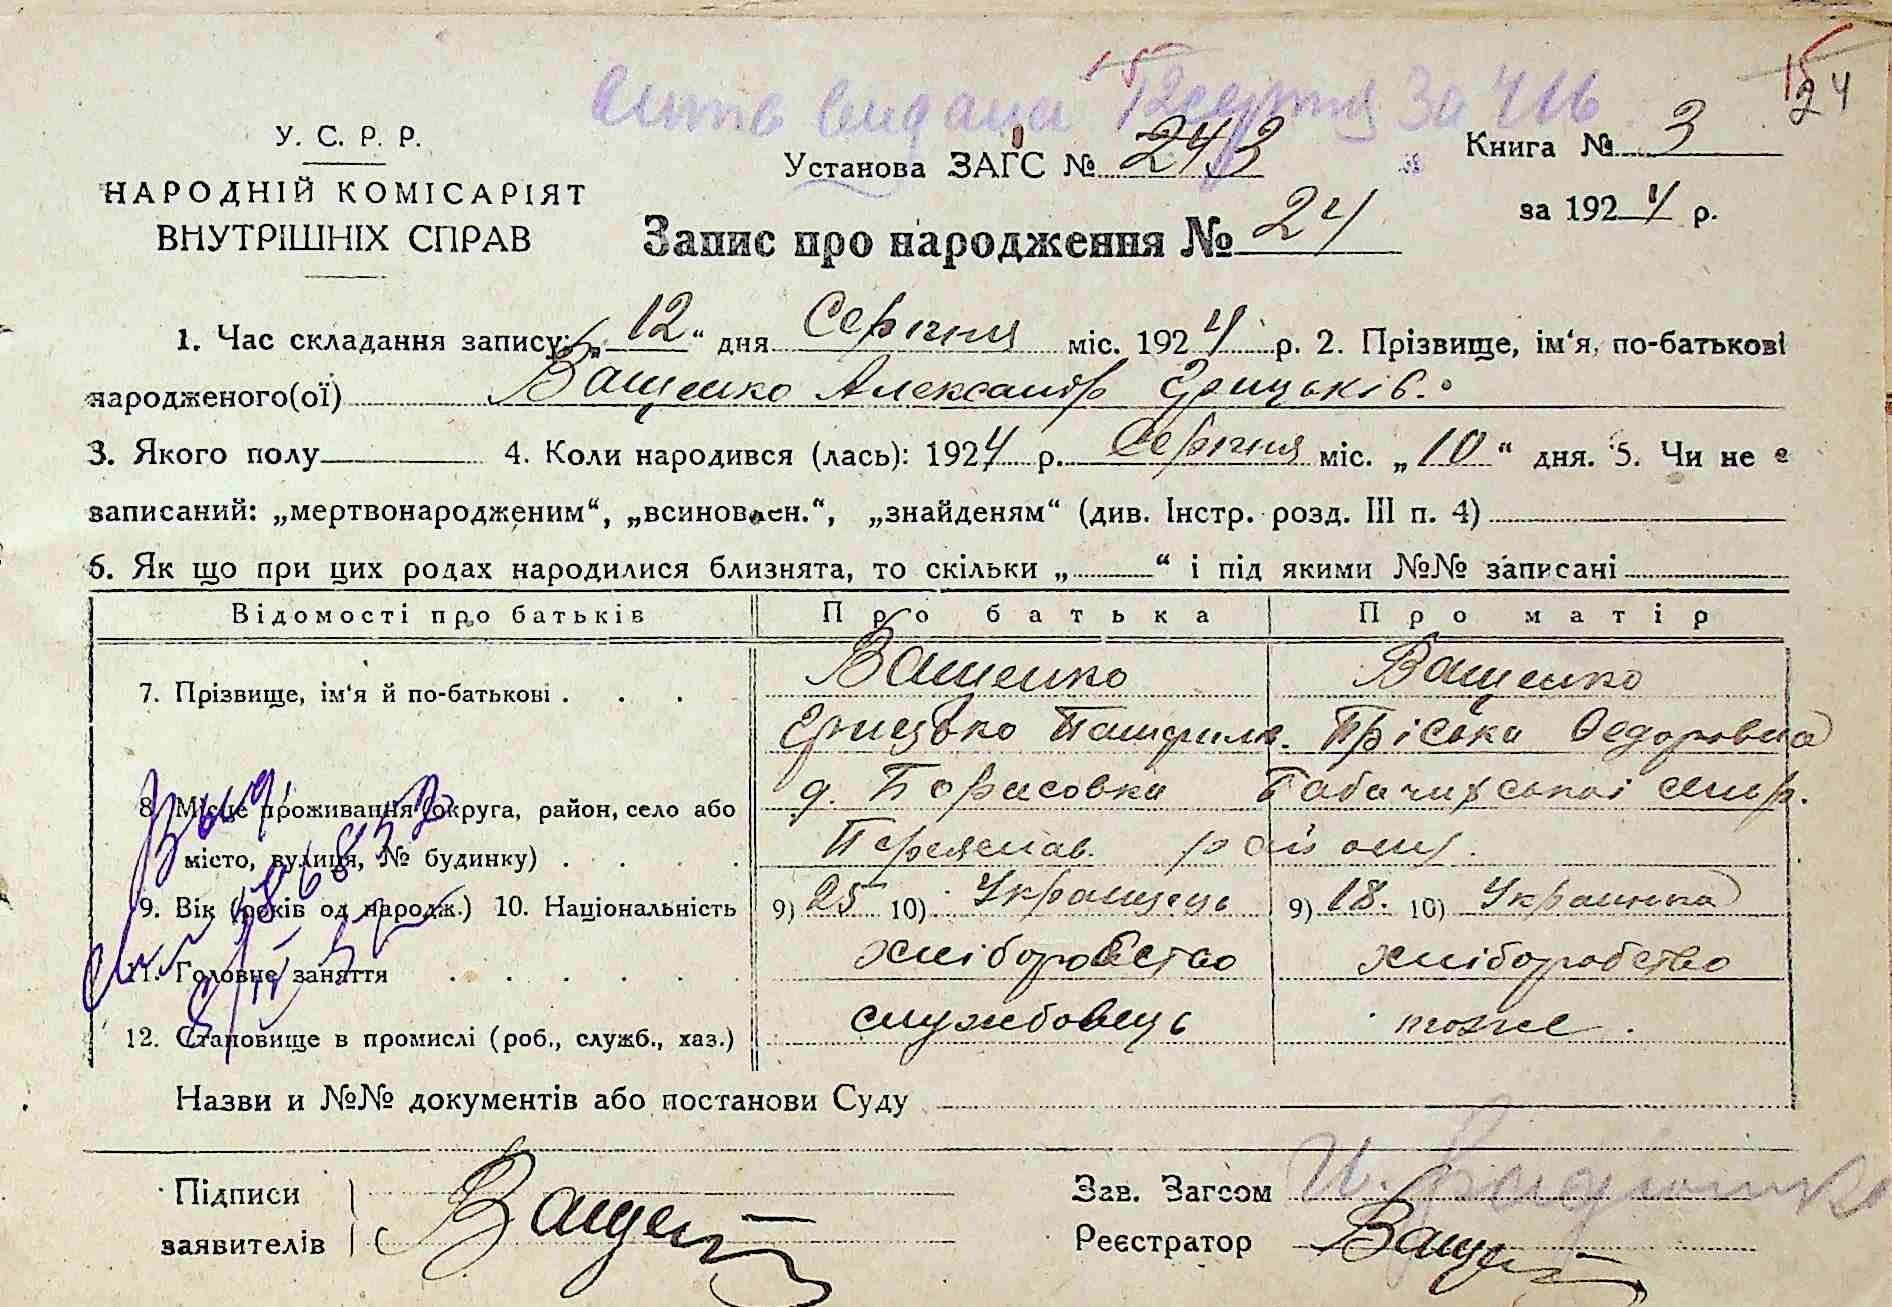 Акт видана 12 серпня За 416
15
24
У. С. Р. Р.
НАРОДНІЙ КОМІСАРІЯТ
ВНУТРІШНІХ СПРАВ
Установа ЗАГС № 243
Книга № 3
за 1924 р.
Запис про народження № 24
1. Час складання запису: „12“ дня Серпня міс. 1924 р. 2. Прізвище, ім‘я, по-батькові
народженого(ої) Ващенко Александр Грицьків.
3. Якого полу 4. Коли народився (лась): 1924 р. Серпня міс. „10“ дня. 5. Чи не є
записаний: „мертвонародженим“, „всиновлен.“, „знайденям“ (див. Інстр. розд. III п. 4)
6. Як що при цих родах народилися близнята, то скільки „ “ і під якими №№ записані
Відомості про батьків Про батька Про матір
7. Прізвище, ім‘я й по-батькові . . . Ващенко Ващенко
Грицько Панфилов. Пріська Федоровна
8. Місце проживання (округа, район, село або д. Борисовка Бабачихської сільр.
місто, вулиця, № будинку) . . . . Переяслав. району.
9. Вік (років од народж.) 10. Національність 9) 25 10) Украинець 9) 18. 10) Украинка
11. Головне заняття . . . . . . хліборобство хліборобство
12. Становище в промислі (роб., служб., хаз.) службовець тоже.
Назви и №№ документів або постанови Суду
Підписи
заявителів Ващен
Зав. Загсом
Реєстратор Ващен